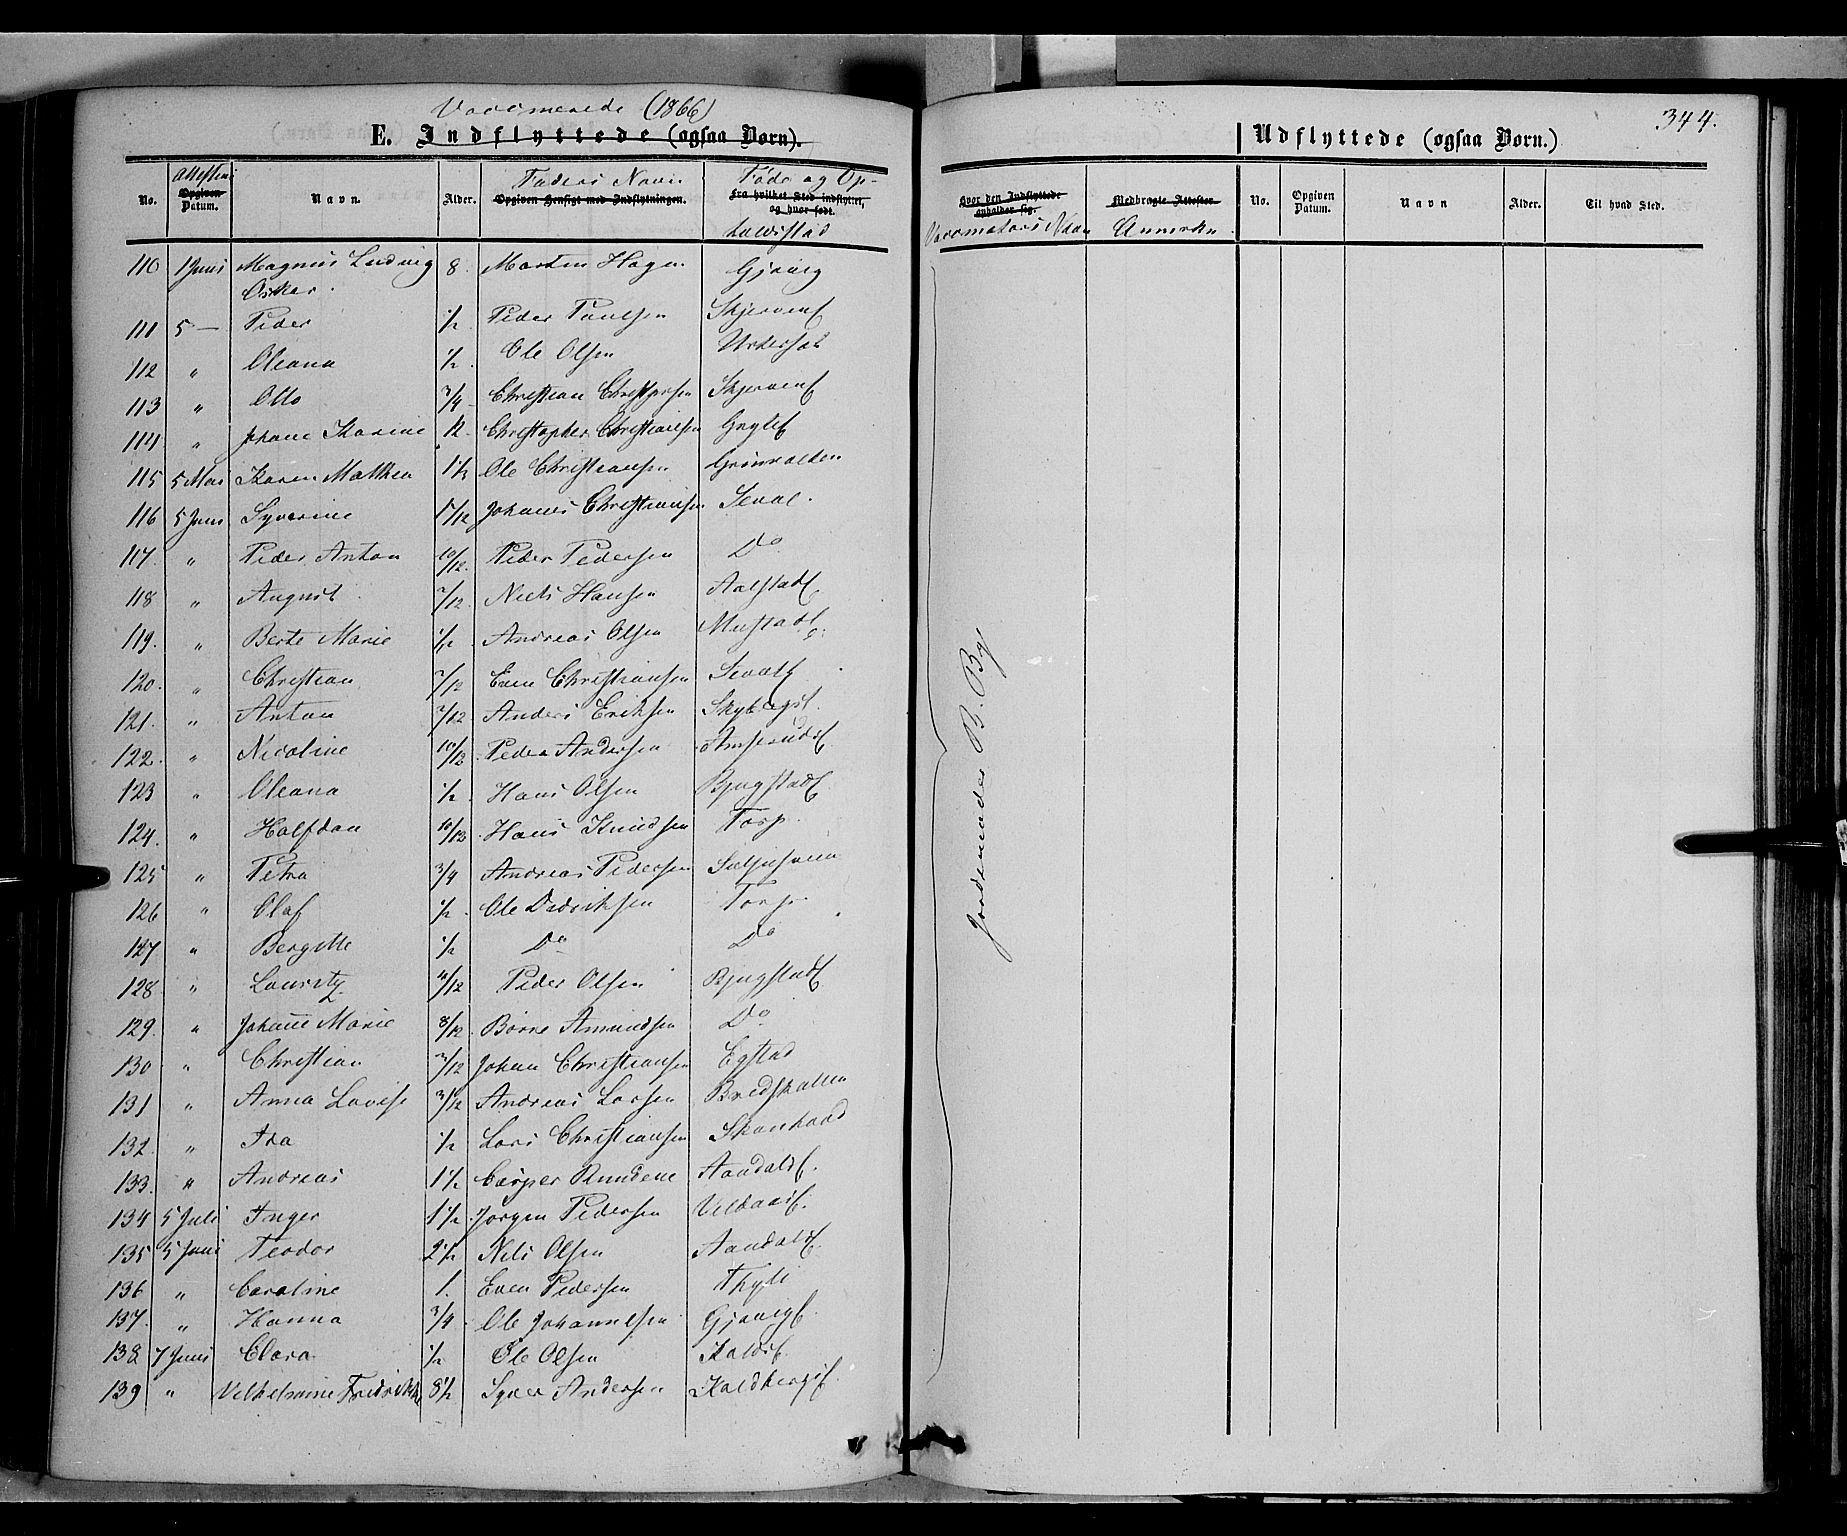 Vaccinerede (1866)
E. Indflyttede (ogsaa Børn).
No. Attestens Opgiven Datum. Navn. Alder. Faders Navn Opgiven Hensigt med Indflytningen. Føde og Op- Fra hvilket Sted indflyttet, og hvor født. holdsstad
110 1 Juni Magnus Ludvig 8. Martin Hagen Gjøvig
Oskar.
111 5 — Peder 1/2 Peder Paulsen Skjervenf
112 " Oleana 1/2. Ole Olsen
113 " Otto 3/4 Christian Christophersen Skjervenf
114 " Johane Karine 12. Christopher Christiansen
115 5 Mai Karen Mathea 1 1/2 Ole Christiansen
116 5 Juni Syverine Johanes Christiansen Seval.
117. " Peder Anton 10/12. Peder Pedersen Do
118 " August Niels Hansen Aalstadf.
119. " Berte Marie 1/2 Andreas Olsen Mustad
120. " Christian 7/12 Even Christiansen Sevalf
121. " Anton 7/12 Anders Eriksen
122. " Nicoline 10/12 Peder Andersen
123 " Oleana 1/2 Hans Olsen Bjugstadf
124. " Halfdan 10/12. Hans Knudsen Torp.
125 " Petra 3/4 Andreas Pedersen
126 " Olaf 1/2. Ole Didriksen Torp
127 " Bergitte 1/2 Do Do
128. " Lauritz 4/12 Peder Olsen Bjugstadf
129. " Johane Marie 8/12. Børre Amundsen Do
130 " Christian Johan Christiansen Egstad
131 " Anna Lovise 3/12 Andreas Larsen Bredskallen
132. " Ida 1/2 Lars Christiansen
133. " Andreas 1 1/2 Casper Rundene Aandalsf.
134 5 Juli Inger 1 1/2. Jørgen Pedersen
135 5 Juni Teodor 2 1/2 Nils Olsen Aandalsf.
136 " Caroline 1. Even Pedersen Thyli
137. " Hanna 3/4. Ole Johannesen Gjøvigf.
138 7 Juni Clara 1/2 Ole Olsen
139 " Vilhelmine Fredrikke 8 1/2 Syver Andersen
344.
Udflyttede (ogsaa Børn.)
Hvor den Indflyttede opholder sig. Vaccinatørs Navn Medbragte Attester. Anmerkn. No. Opgiven Datum. Navn Alder. Til hvad Sted.
Jordemoder B. By